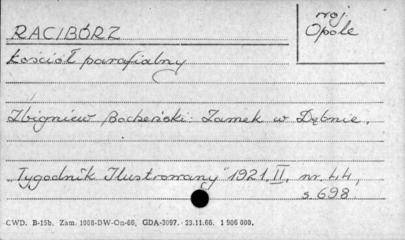 woj.
Opole
RACIBÓRZ
kościół parafialny
Zbigniew Bocheński: Zamek w Dębnie.
„Tygodnik Ilustrowany" 1921.II. nr. 44,
s. 698.
CWD. B-15b. Zam. 1906-DW-On-66, GDA-3097. - 23.11.66. 1 906 000.